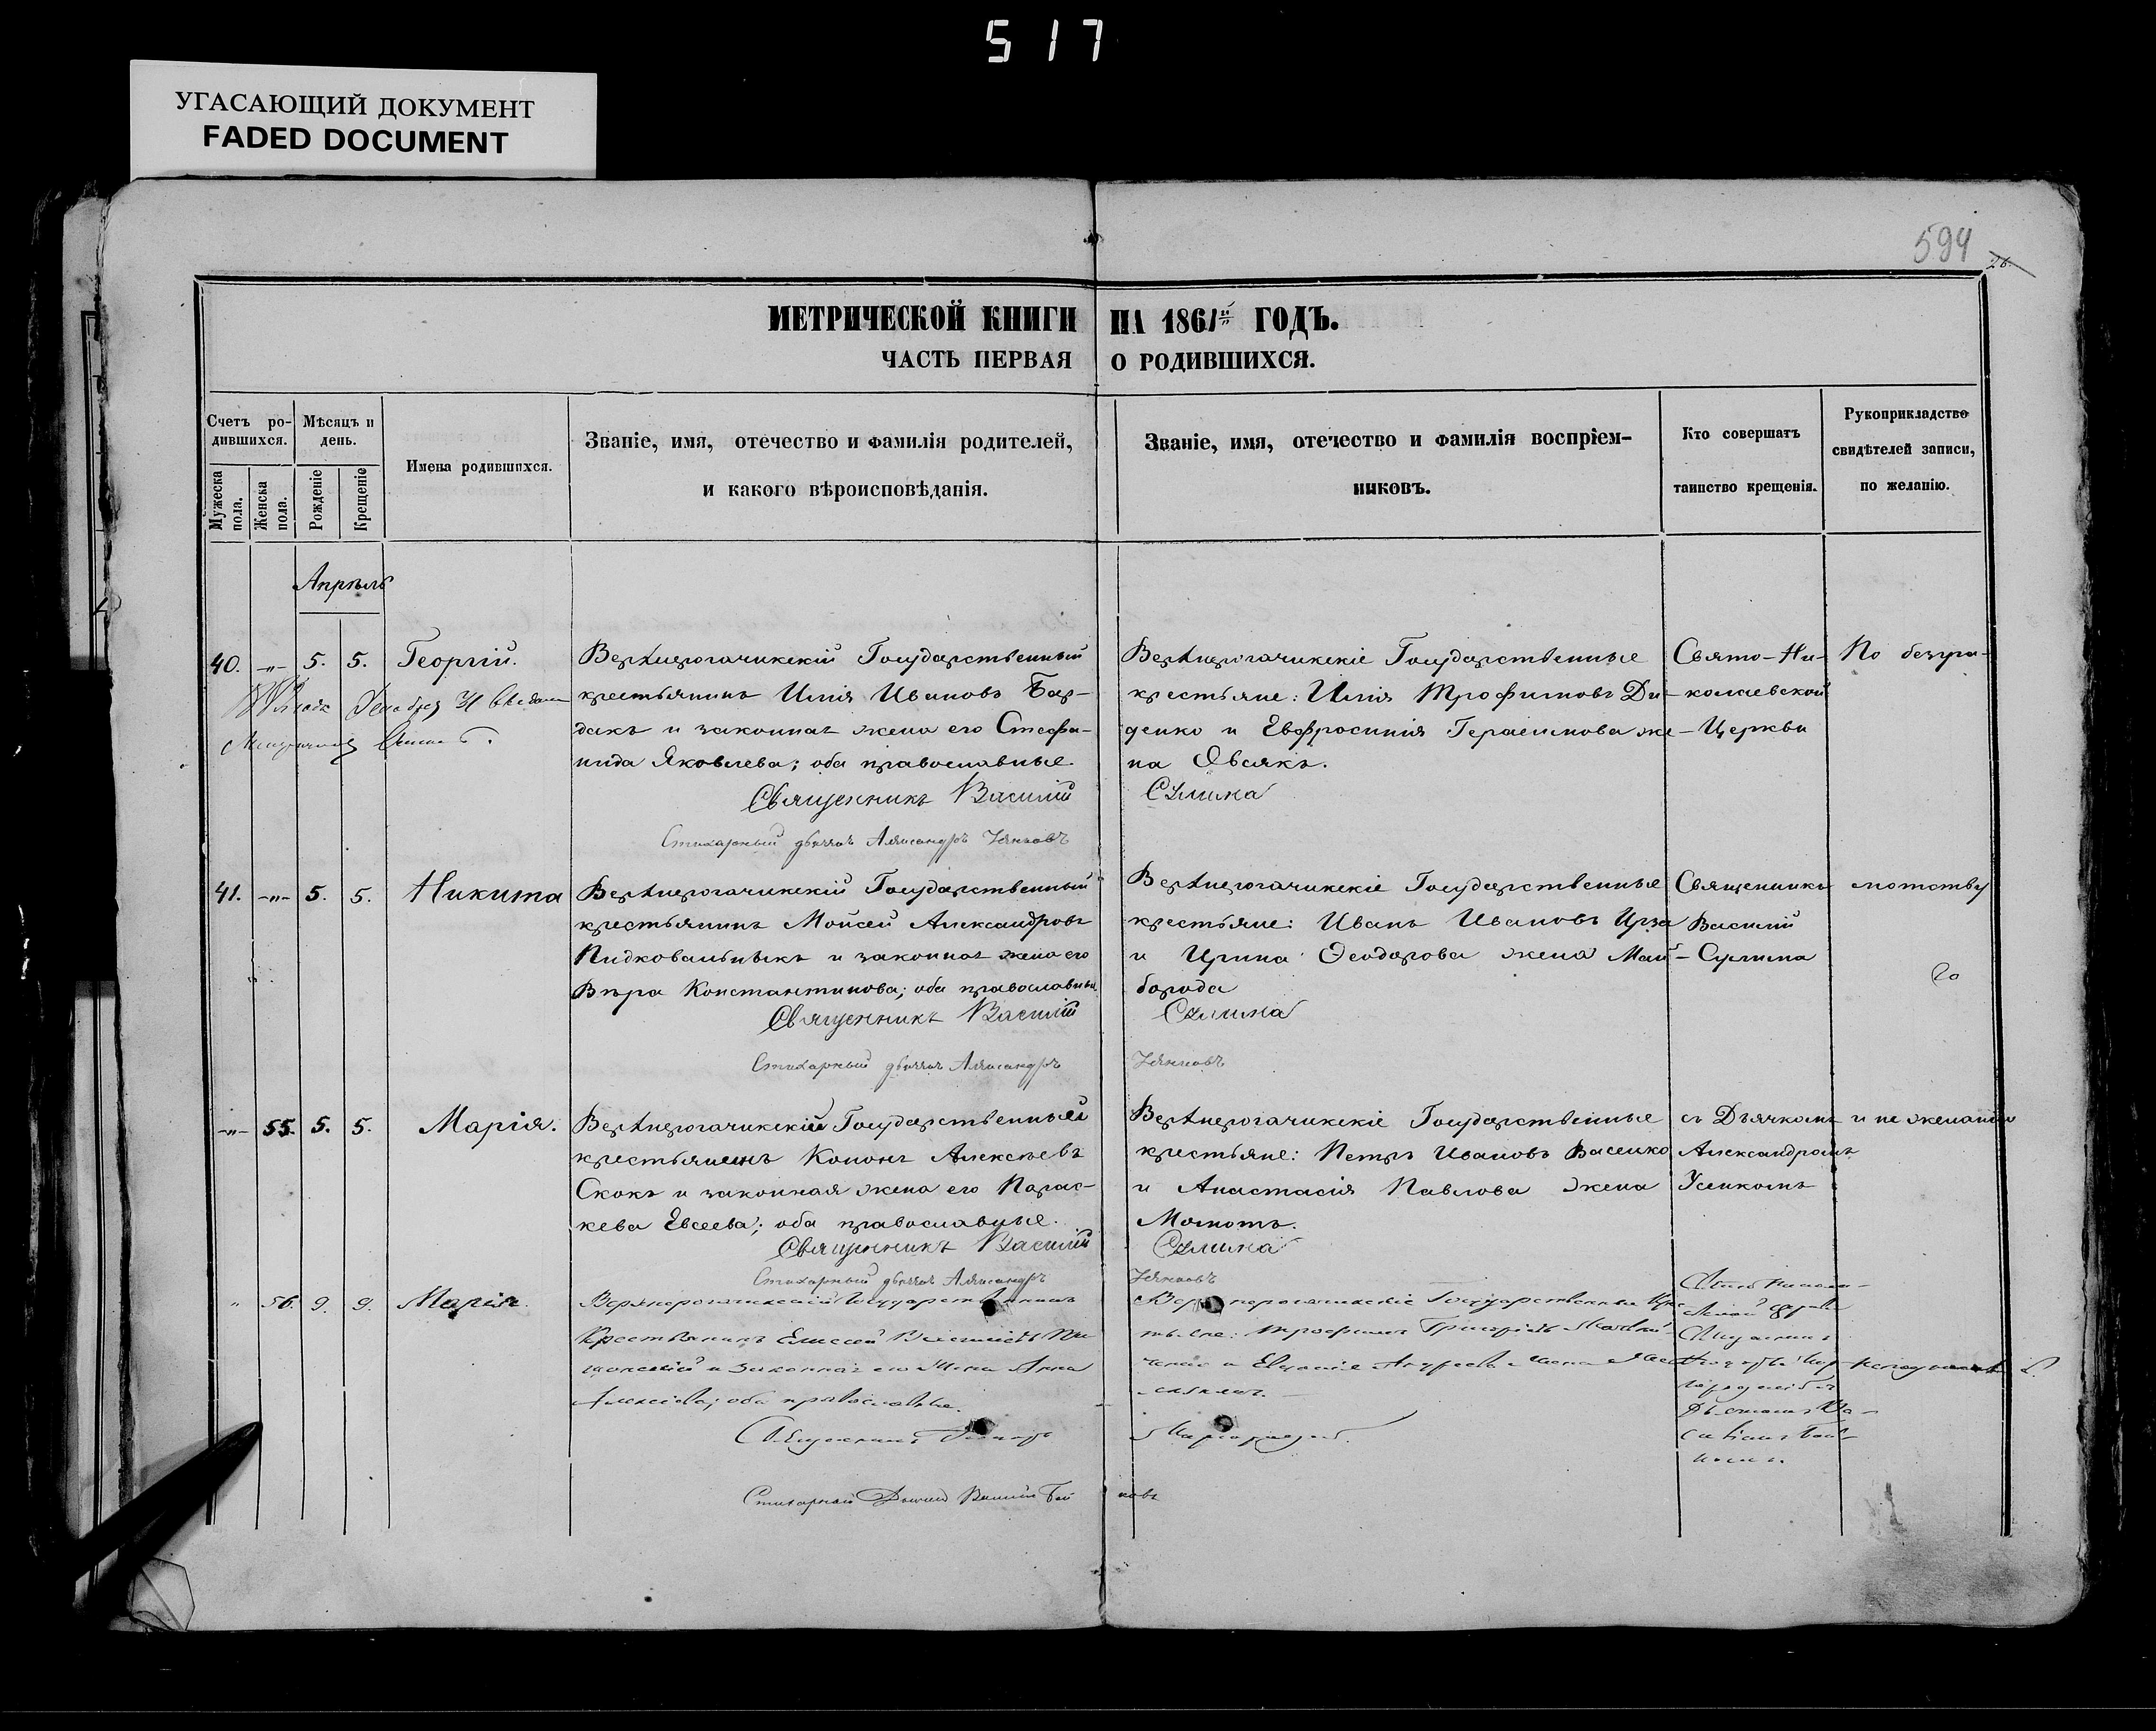 517
УГАСАЮЩИЙ ДОКУМЕНТ
FADED DOCUMENT
594
26.
МЕТРИЧЕСКОЙ КНИГИ НА 1861й ГОДЪ.
ЧАСТЬ ПЕРВАЯ О РОДИВШИХСЯ.
Счетъ ро-
дившихся.
Мужеска пола.
Женска пола.
Мѣсяцъ и
день.
Рожденіе
Крещеніе
Имена родившихся.
Званіе, имя, отечество и фамилія родителей,
и какого вѣроисповѣданія.
Званіе, имя, отечество и фамилія воспріем-
никовъ.
Кто совершатъ
таинство крещенія.
Рукоприкладство
свидѣтелей записи,
по желанію.
Апрѣль
40. -"- 5. 5. Георгій.
Верхнерогачикскій Государственный
крестьянинъ Илія Ивановъ Бар-
дакъ и законная жена его Стефа-
нида Яковлева; оба православные.
Верхнерогачикскіе Государственные
крестьяне: Илія Трофимовъ Ди-
денко и Евфросинія Герасимова же-
на Овсякъ.
Свято-Ни-
колаевской
Церкви
По безгра-
Священникъ Василій Сулима
Стихарный дьячокъ Александръ
41. -"- 5. 5. Никита
Верхнерогачикскій Государственный
крестьянинъ Мойсей Александровъ
Пидковальныкъ и законная жена его
Вѣра Константинова; оба православные.
Верхнерогачикскіе Государственные
крестьяне: Иванъ Ивановъ Ирза
и Ирина Феодорова жена Май-
борода
Священникъ
Василій
Сулима
мотству
Священникъ Василій Сулима
Стихарный дьячокъ Александръ
-"- 55. 5. 5. Марія.
Верхнерогачикскій Государственный
крестьянинъ Кононъ Алексѣевъ
Скокъ и законная жена его Парас-
кева Евсеева; оба православные.
Верхнерогачикскіе Государственные
крестьяне: Петръ Ивановъ Васенко
и Анастасія Павлова жена
Момотъ.
съ Дьячкомъ
Александромъ
Усенкомъ
и не желанію
Священникъ Василій Сулима
Стихарный дьячокъ Александръ
" 56. 9. 9. Марія.
Верхнерогачикскій Государственный
Крестьянинъ Елисей
и законная его жена Анна
Алексіева; оба православные.
Верхнерогачикскіе Государственные
Трофимъ Григорьевъ
Андреева жена
Священникъ
Стихарный Дьячокъ Василій